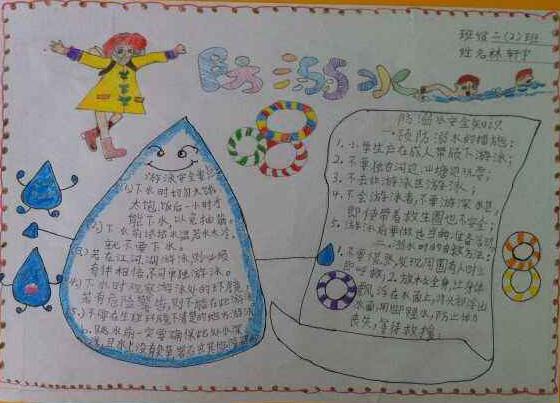 班级二(2)班
姓名林轩宇
防溺水
游泳安全要
下水时切勿太饿、
太饱,饭后一小时才
能下水,以免抽筋。
下水前试试水温若水太冷,
就不要下水。
若在江、河、湖、海游泳,则必须
有伴相陪,不可单独游泳。
下水时观察游泳处的环境,
若有危险警告,则不能在此游泳
不要在地理环境不清楚的地方游泳
跳水前一定要确保此处水深
且水上没有杂草
防溺水安全知识
一.预防溺水的措施:
1.小学生应在成人带领下游泳;
2.不要独自河边、山塘边玩耍;
3.不去非游泳区游泳;
4.不会游泳者,不要游深水区,
即使带着救生圈也不安全;
5.游泳前要做适当的准备活动
二.溺水时的自救方法:
1.不要慌张,发现周围有人时立
即呼救;2.放松全身,让身体
飘浮在水面上,将头部浮出
水面,用脚踢水,防止体力
丧失,等待救援;